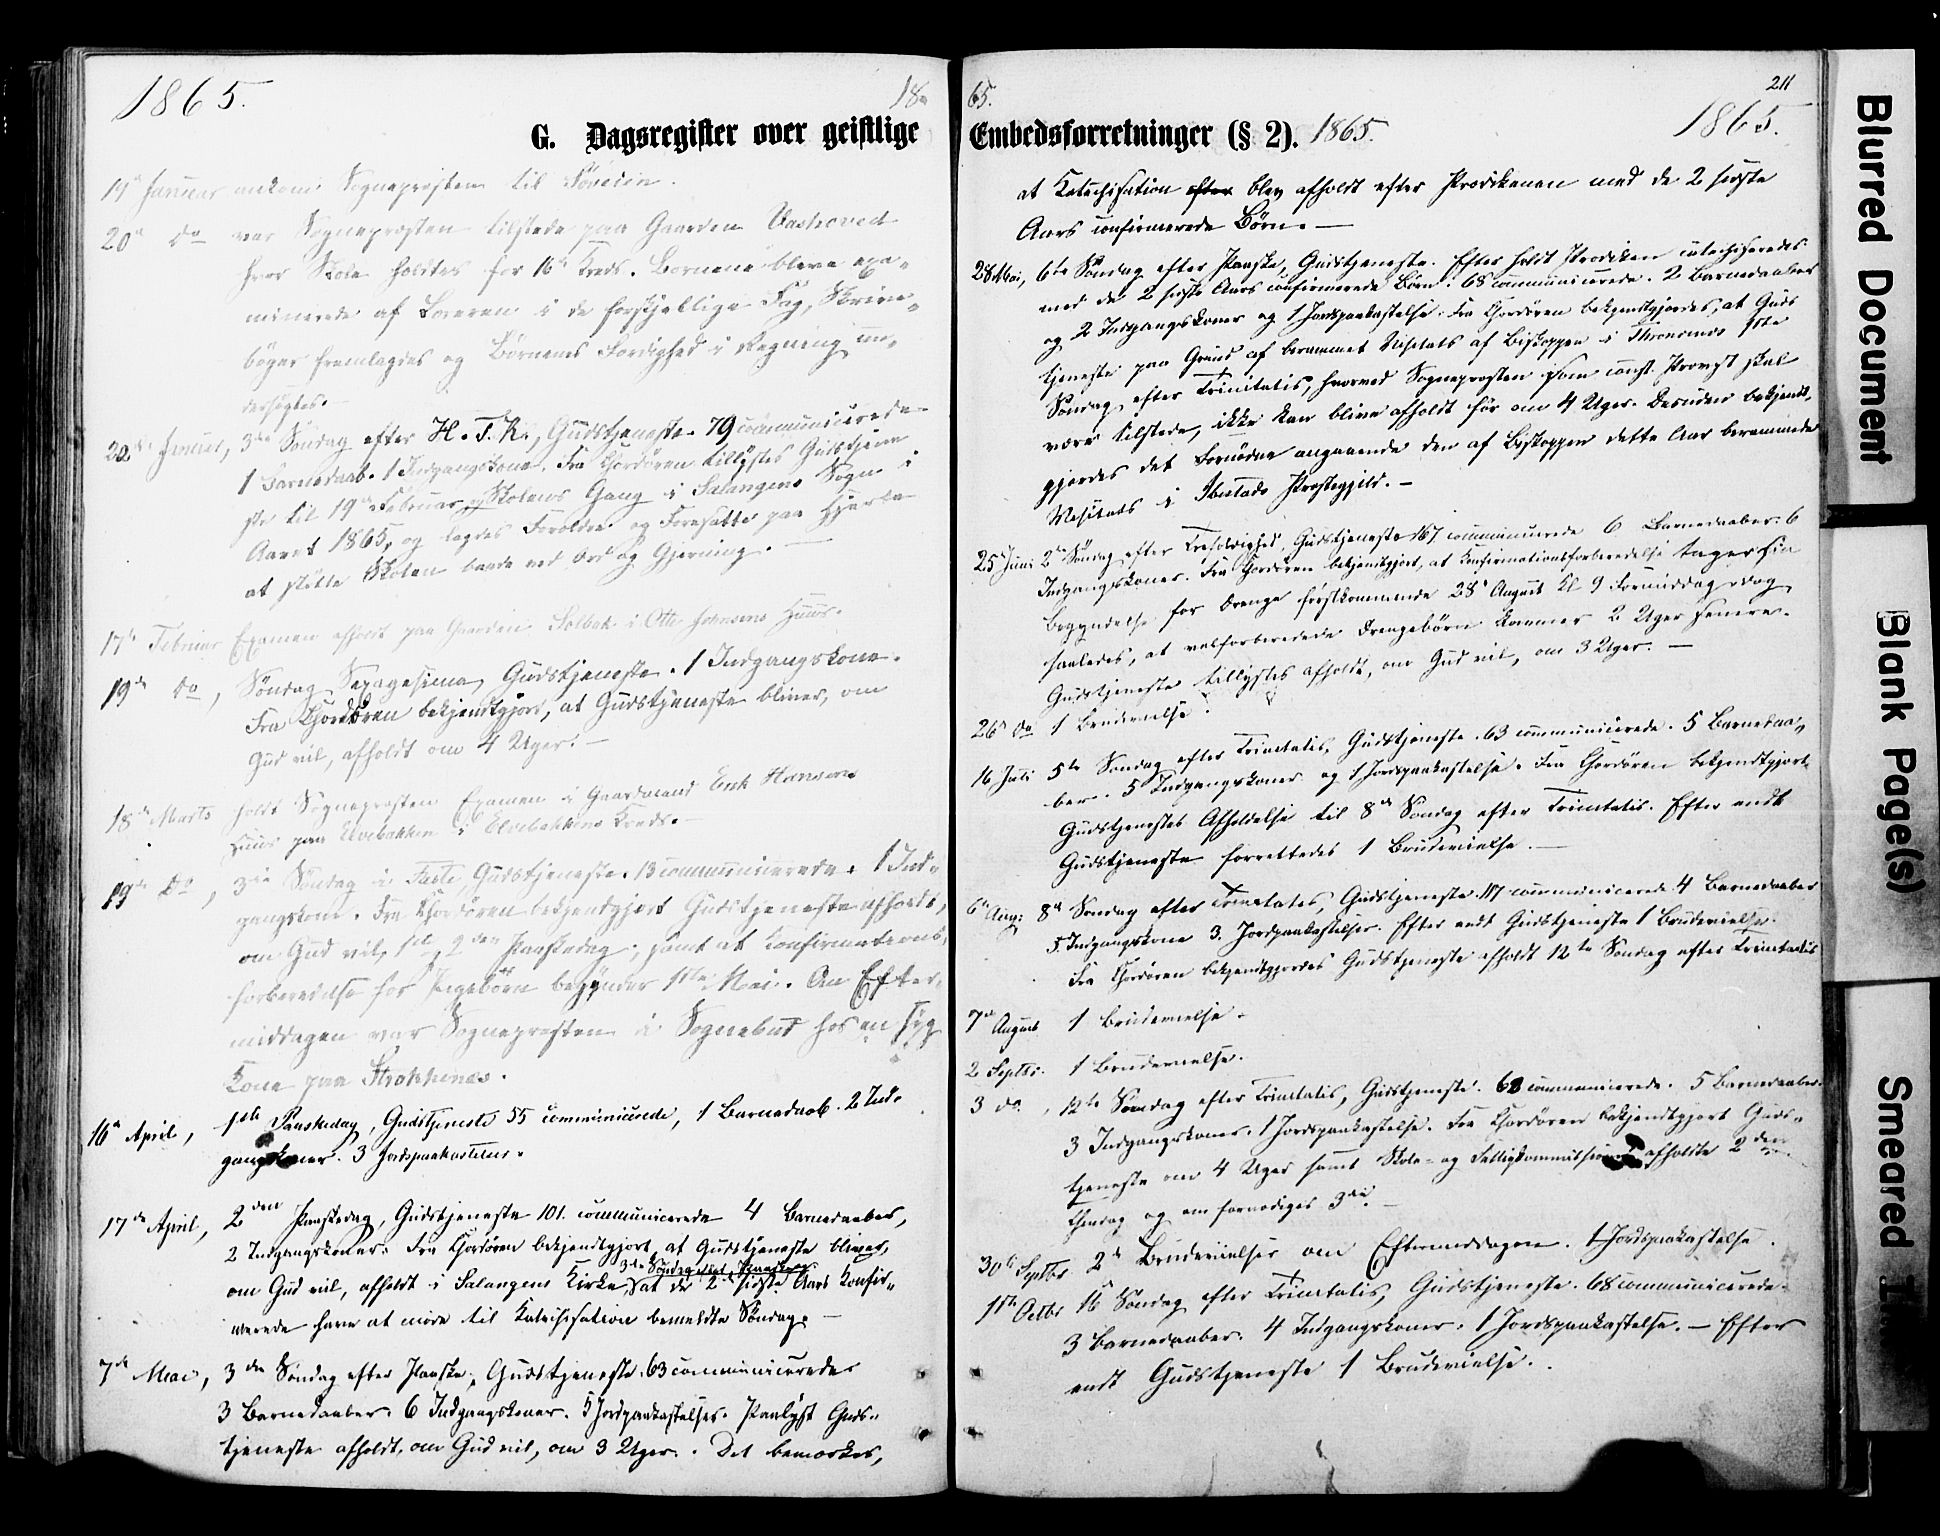 1865.
18
65.
211
G. Dagsregister over geistlige Embedsforretninger (§ 2). 1865.
1865.
19de Januar ankom Sognepræsten til Søveien.
20de do var Sognepræsten tilstede paa Gaarden
hvor Skole holdtes for 16de Kreds. Børnene bleve exa-
minerede af Læreren i de forskjellige Fag, Skrive-
bøger fremlagdes og Børnenes Færdighed i Regning un-
dersøgtes.
22de Januar, 3die Søndag efter H. T. K., Gudstjeneste. 79 communicerede
1 Barnedaab. 1 Indgangskone. Fra Chordøren tillystes Gudstjene-
ste til 19de Februar, Skolens Gang i Salangens Sogn i
Aaret 1865, og lagdes Forældre og Foresatte paa Hjerte
at støtte Skolen baade ved Ord og Gjerning. —
17de Februar Examen afholdt paa Gaarden Solbak i Otte Johnsens Huus.
19de do, Søndag Sexagesima, Gudstjeneste. 1 Indgangskone.
Fra Chordøren bekjendtgjort, at Gudstjeneste bliver, om
Gud vil, afholdt om 4 Uger. —
18de Marts holdt Sognepræsten Examen i Gaardmand Erik Hansens
Huus paa Elvebakken i Elvebakkens Kreds. —
19de do, 3die Søndag i Faste, Gudstjeneste. 13 communicerede. 1 Ind-
gangskone. Fra Chordøren bekjendtgjort Gudstjeneste afholdt,
om Gud vil, 1ste og 2den Paaskedag; samt at Confirmations-
forberedelse for Pigebørn begynder 1ste Mai. Om Efter-
middagen var Sognepræsten i Sognebud hos en syg
Kone paa Strokkenæs.
16de April, 1ste Paaskedag, Gudstjeneste 55 communicerede, 1 Barnedaab. 2 Ind-
gangskoner. 3 Jordspaakastelser.
17de April, 2den Paaskedag, Gudstjeneste 101. communicerede 4 Barnedaaber,
2 Indgangskoner. Fra Chordøren bekjendtgjort, at Gudstjeneste bliver,
3die Søndag efter Paaske,
om Gud vil, afholdt i Salangens Kirke, at de 2de sidste Aars Konfir-
merede have at møde til Katechisation bemeldte Søndag. —
7de Mai, 3die Søndag efter Paaske, Gudstjeneste. 63 communicerede
3 Barnedaaber. 6 Indgangskoner. 5 Jordpaakastelser. Paalyst Guds-
tjeneste afholdt, om Gud vil, om 3 Uger. Det bemærkes,
at Katechisation efter blev afholdt efter Prædikenen med de 2 sidste
Aars confirmerede Børn. —
28 Mai, 6te Søndag efter Paaske, Gudstjeneste. Efter holdt Prædiken catechiseredes
med de 2 sidste Aars confirmerede Børn. 68 communicerede. 2 Barnedaaber
og 2 Indgangskoner og 1 Jordspaakastelse. Fra Chordøren bekjendtgjordes, at Guds
tjeneste paa Grund af berammet Visitats af Biskoppen i Throndenes 1ste
Søndag efter Trinitatis, hvorved Sognepræsten som const. Provst skal
være tilstede, ikke kan blive afholdt før om 4 Uger. Desuden bekjendt-
gjordes det Fornødne angaaende den af Biskoppen dette Aar berammede
Visitats i Ibestads Præstegjeld. —
25 Juni 2de Søndag efter Trefoldighed, Gudstjeneste 167 communicerede 6 Barnedaaber. 6
Indgangskoner. Fra Chordøren bekjendtgjort, at Konfirmationsforberedelse tager sin
begyndelse for Drenge førstkommende 28de August Kl. 9 Formiddag
saaledes, at velforberedede Drengebørn kommer 2 Uger senere.
Gudstjeneste tillystes afholdt, om Gud vil, om 3 Uger. —
26de do 1 Brudevielse.
16 Juli 5te Søndag efter Trinitatis, Gudstjeneste. 63 communicerede. 5 Barnedaa-
ber. 5 Indgangskoner og 1 Jordspaakastelse. Fra Chordøren bekjendtgjort
Gudstjenestes Afholdelse til 8de Søndag efter Trinitatis. Efter endt
Gudstjeneste forrettedes 1 Brudevielse. —
6te Aug: 8de Søndag efter Trinitatis, Gudstjeneste. 117 communicerede 4 Barnedaaber
5. Indgangskone 3. Jordpaakastelser. Efter endt Gudstjeneste 1 Brudevielse.
Fra Chordøren bekjendtgjordes Gudstjeneste afholdt 12te Søndag efter Trinitatis
7de August 1 Brudevielse.
2 Septbr. 1 Brudevielse.
3 do., 12te Søndag efter Trinitatis, Gudstjeneste. 68 communicerede. 5 Barnedaaber.
3 Indgangskoner. 1 Jordspaakastelse. Fra Chordøren bekjendtgjort Guds-
tjeneste om 4 Uger samt Skole- og Fattigkommission afholdt 2den
Thingdag og om fornødiges 3die. —
30te Septbr. 2de Brudevielser om Eftermiddagen. 1 Jordspaakastelse.
1ste Octbr 16 Søndag efter Trinitatis, Gudstjeneste. 68 communicerede.
3 Barnedaaber. 4 Indgangskoner. 1 Jordspaakastelse. — Efter
endt Gudstjeneste 1 Brudevielse.
Blurred Document
Blank Page(s)
Smeared